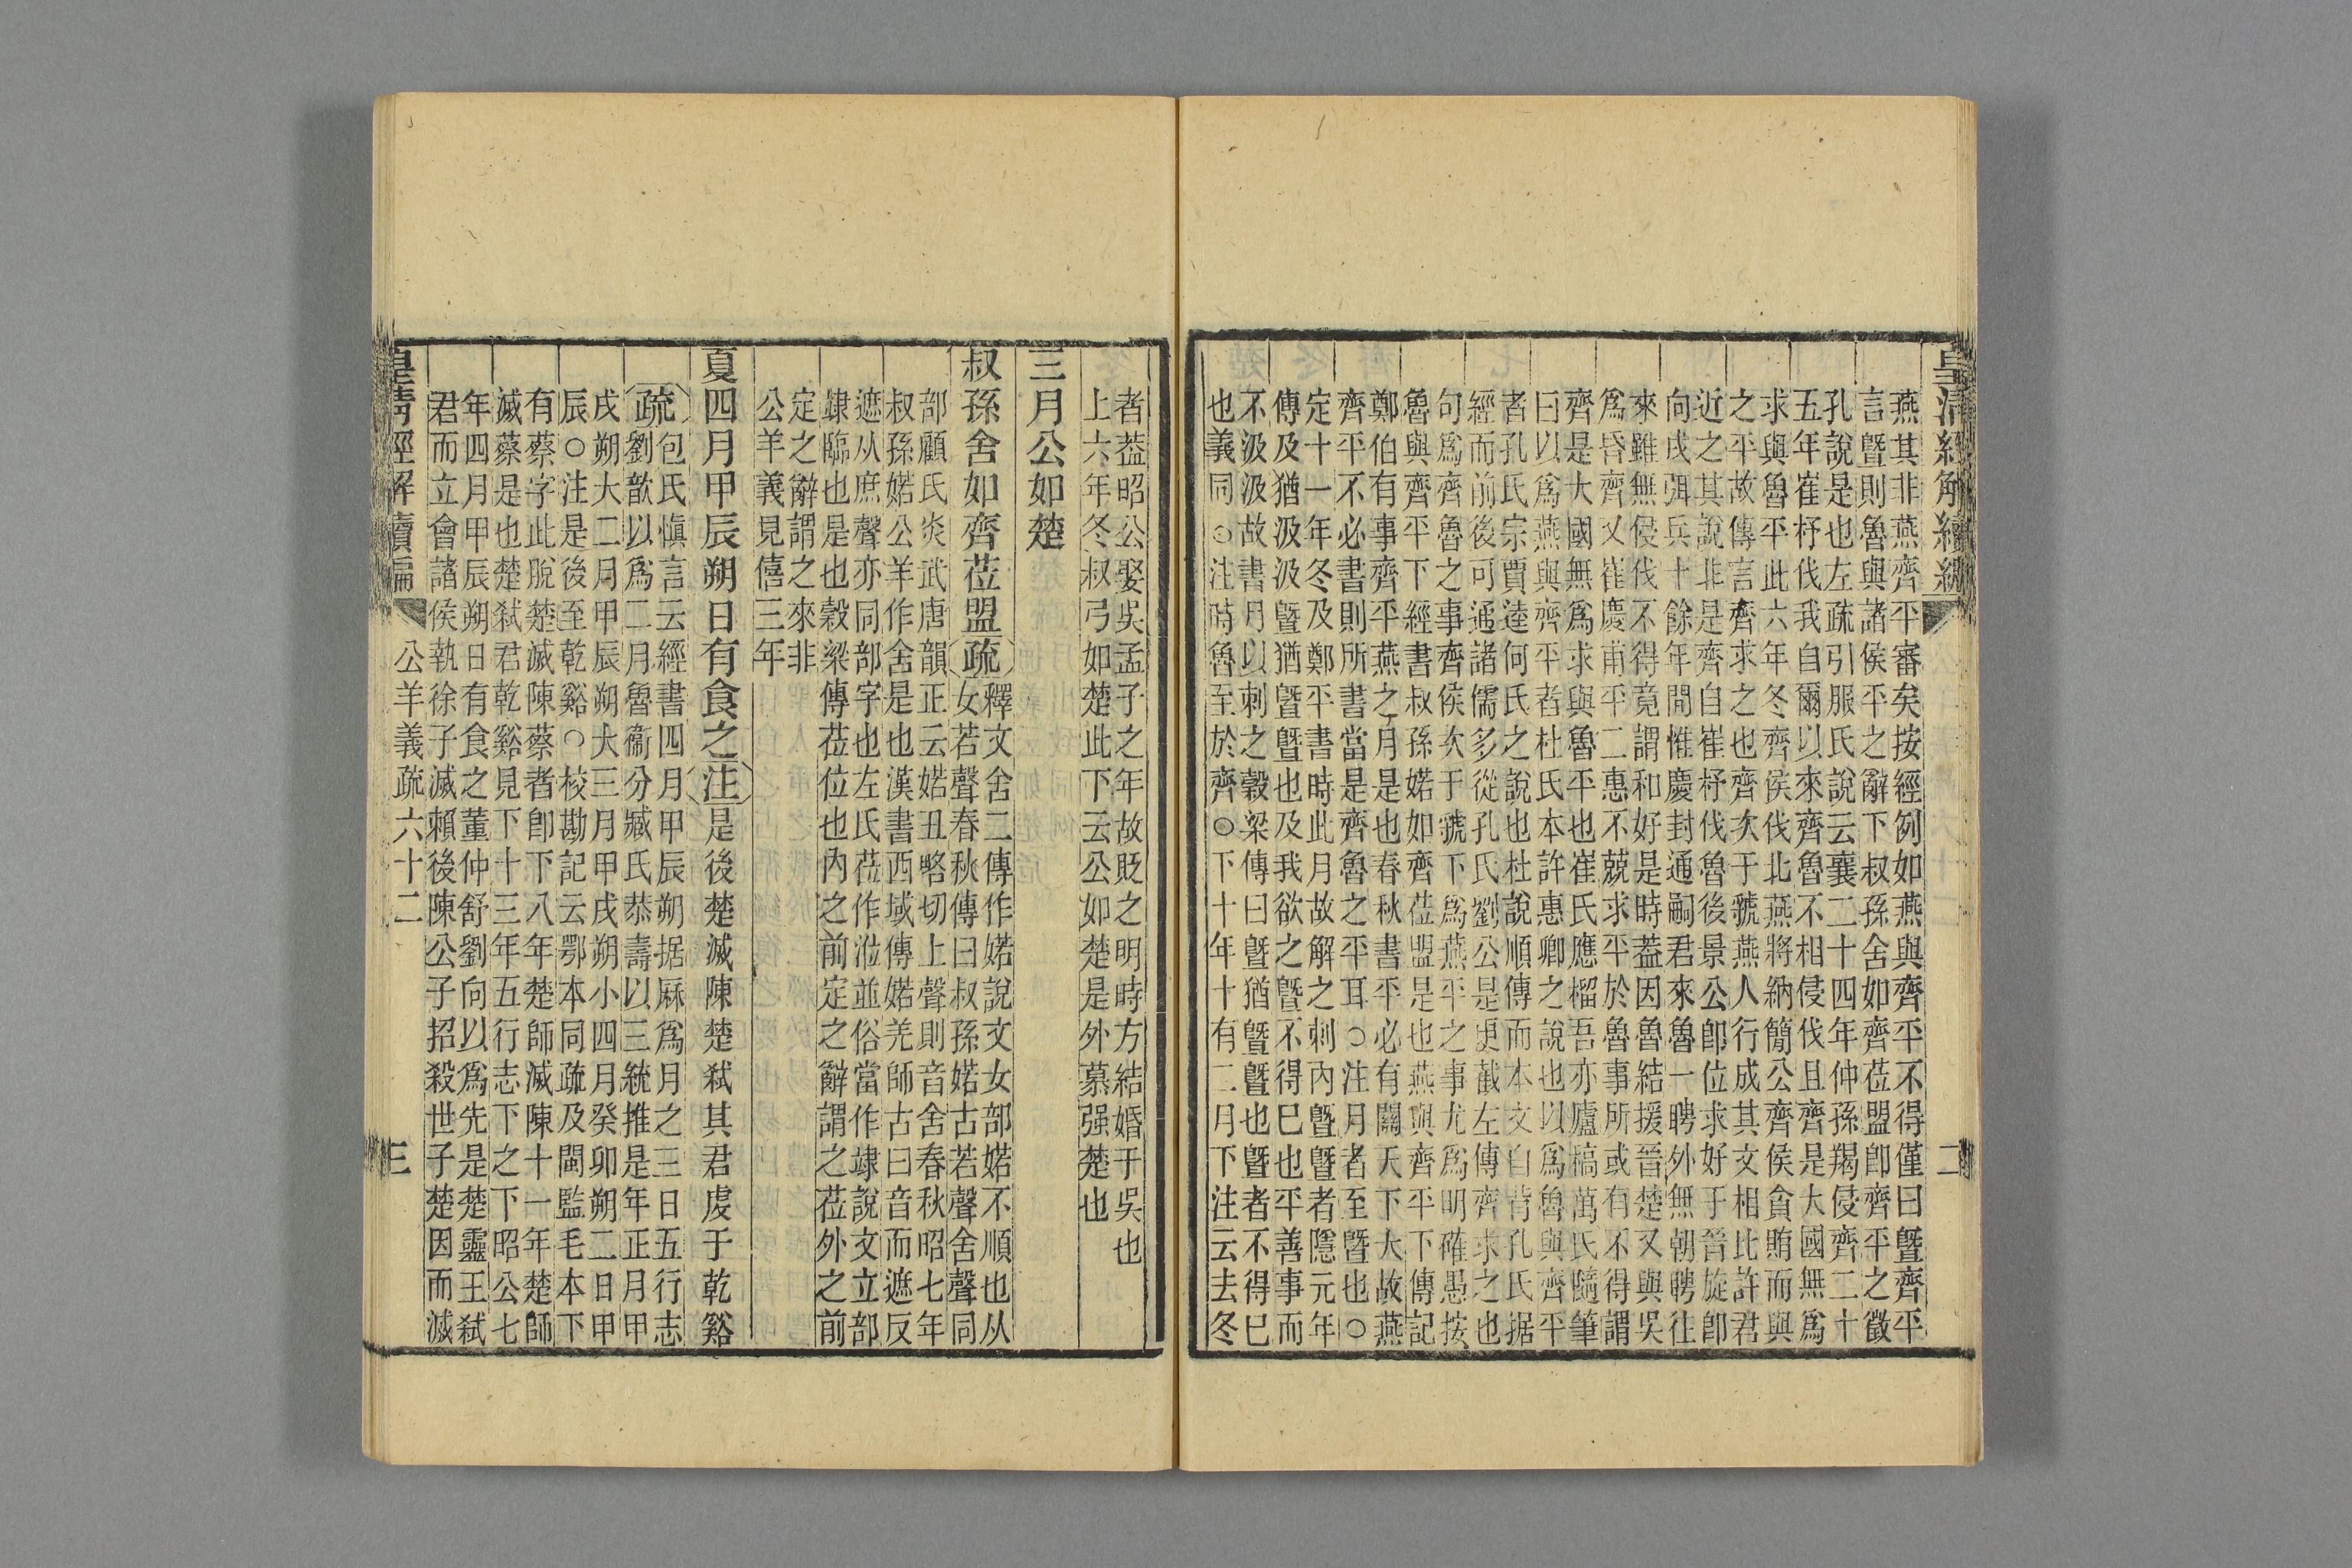 皇清經解續編
二
燕其非燕齊平審矣按經例如燕與齊平不得僅曰曁齊平
言曁則魯與諸侯平之辭下叔孫舍如齊莅盟卽齊平之徵
孔說是也左疏引服氏說云襄二十四年仲孫羯侵齊二十
五年崔杼伐我自爾以來齊魯不相侵伐且齊是大國無爲
求與魯平此六年冬齊侯伐北燕將納簡公齊侯貪賄而與
之平故傳言齊求之也齊次于虢燕人行成其文相比許君
近之其說非是齊自崔杼伐魯後景公卽位求好于晉旋卽
向戌弭兵十餘年間惟慶封通嗣君來魯一聘外無朝聘往
來雖無侵伐不得竟謂和好是時葢因魯結援晉楚又與吳
爲昏齊又崔慶甫平二惠不競求平於魯事所或有不得謂
齊是大國無爲求與魯平也崔氏應榴吾亦廬槁萬氏隨筆
曰以爲燕與齊平者杜氏本許惠卿之說也以爲魯與齊平
者孔氏宗賈逵何氏之說也杜說順傳而本文自背孔氏据
經而前後可通諸儒多從孔氏劉公是更截左傳齊求之也
句爲齊魯之事齊侯次于虢下爲燕平之事尤爲明確愚按
魯與齊平下經書叔孫婼如齊莅盟是也燕與齊平下傳記
鄭伯有事齊平燕之月是也春秋書平必有關天下大故燕
齊平不必書則所書當是齊魯之平耳○注月者至曁也○
定十一年冬及鄭平書時此月故解之刺內曁曁者隱元年
傳及猶汲汲曁猶曁曁也及我欲之曁不得已也平善事而
不汲汲故書月以刺之穀梁傳曰曁猶曁曁也曁者不得已
也義同○注時魯至於齊○下十年十有二月下注云去冬
者葢昭公娶吳孟子之年故貶之明時方結婚于吳也
上六年冬叔弓如楚此下云公如楚是外慕强楚也
三月公如楚
叔孫舍如齊莅盟疏釋文舍二傳作婼說文女部婼不順也从
女若聲春秋傳曰叔孫婼古若聲舍聲同
部顧氏炎武唐韻正云婼丑略切上聲則音舍春秋昭七年
叔孫婼公羊作舍是也漢書西域傳婼羌師古曰音而遮反
遮从庶聲亦同部字也左氏莅作涖並俗當作竦說文立部
竦臨也是也穀梁傳莅位也內之前定之辭謂之莅外之前
定之辭謂之來非
公羊義見僖三年
夏四月甲辰朔日有食之注是後楚滅陳楚弑其君虔于乾谿
疏包氏愼言云經書四月甲辰朔据厤爲月之三日五行志
劉歆以爲二月魯衞分臧氏恭壽以三統推是年正月甲
戌朔大二月甲辰朔大三月甲戌朔小四月癸卯朔二日甲
辰○注是後至乾谿○校勘記云鄂本同疏及閩監毛本下
有蔡字此脫楚滅陳蔡者卽下八年楚師滅陳十一年楚師
滅蔡是也楚弑君乾谿見下十三年五行志下之下昭公七
年四月甲辰朔日有食之董仲舒劉向以爲先是楚靈王弑
君而立會諸侯執徐子滅賴後陳公子招殺世子楚因而滅
皇淸經解續編
公羊義疏六十二
三